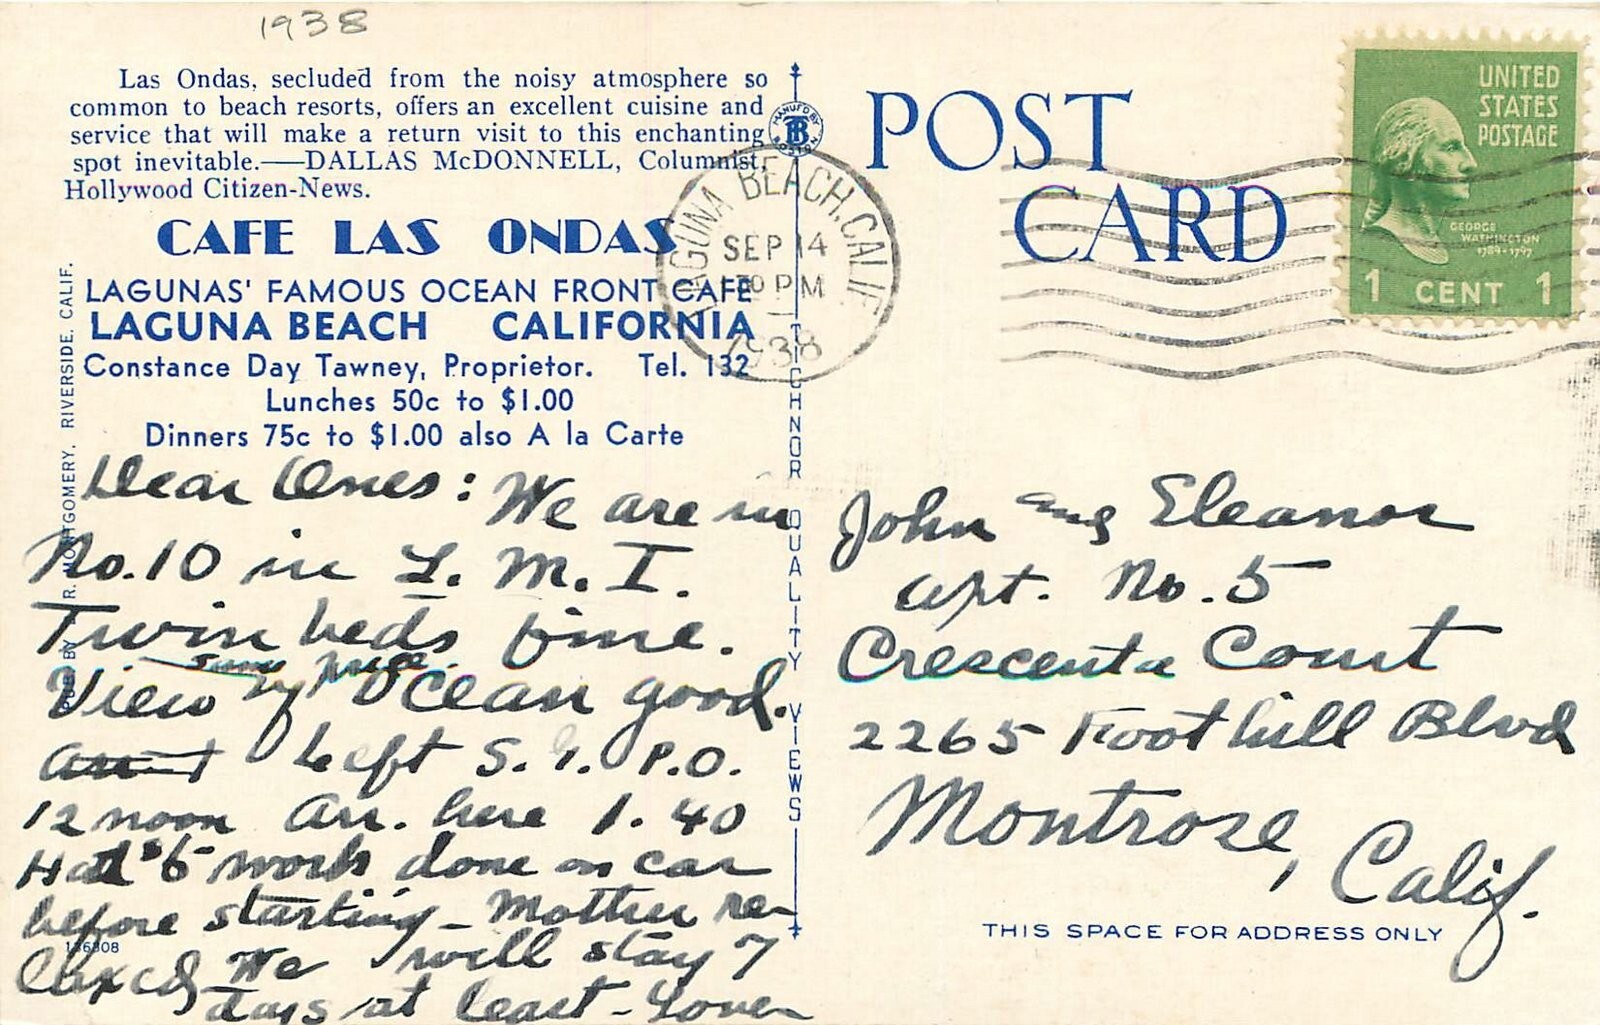 1938
Las Ondas, secluded from the noisy atmosphere so
common to beach resorts, offers an excellent cuisine and
service that will make a return visit to this enchanting
spot inevitable.——DALLAS McDONNELL, Columnist,
Hollywood Citizen-News.
CAFE LAS ONDAS
LAGUNAS' FAMOUS OCEAN FRONT CAFE
LAGUNA BEACH CALIFORNIA
Constance Day Tawney, Proprietor. Tel. 132
Lunches 50c to $1.00
Dinners 75c to $1.00 also A la Carte
R. MONTGOMERY, RIVERSIDE, CALIF.
Dear Ones: We are in
No. 10 in L. M. I.
Twin beds fine.
same price.
View of Ocean good.
Left S. P.O.
12 noon Arr. here 1.40
Had $6 work done on car
before starting - Mother re-
laxed We will stay 7
days at least - Love
136808
MANUFD BY
TB
BOSTON
TICHNOR QUALITY VIEWS
POST
CARD
LAGUNA BEACH, CALIF.
SEP 14
30 PM
1938
UNITED
STATES
POSTAGE
GEORGE
WASHINGTON
1789-1797
1 CENT 1
John and Eleanor
Apt. No. 5
Crescenta Court
2265 Foothill Blvd
Montrose, Calif.
THIS SPACE FOR ADDRESS ONLY